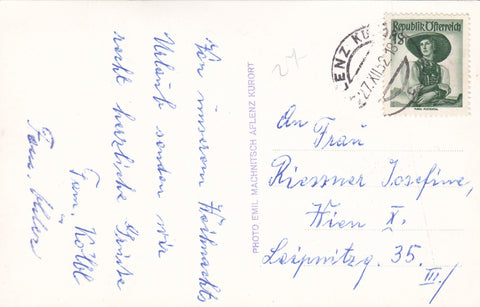 Von unserem Weihnachts-
Urlaub senden wir
recht herzliche Grüße
Fam. Kölbl
Fam.
PHOTO EMIL MACHNITSCH AFLENZ KURORT
27
LENZ KURORT
27.XII.52
Republik Österreich
An Frau
Riessner Josefine,
Wien X.
Leipnitzg. 35.
III./